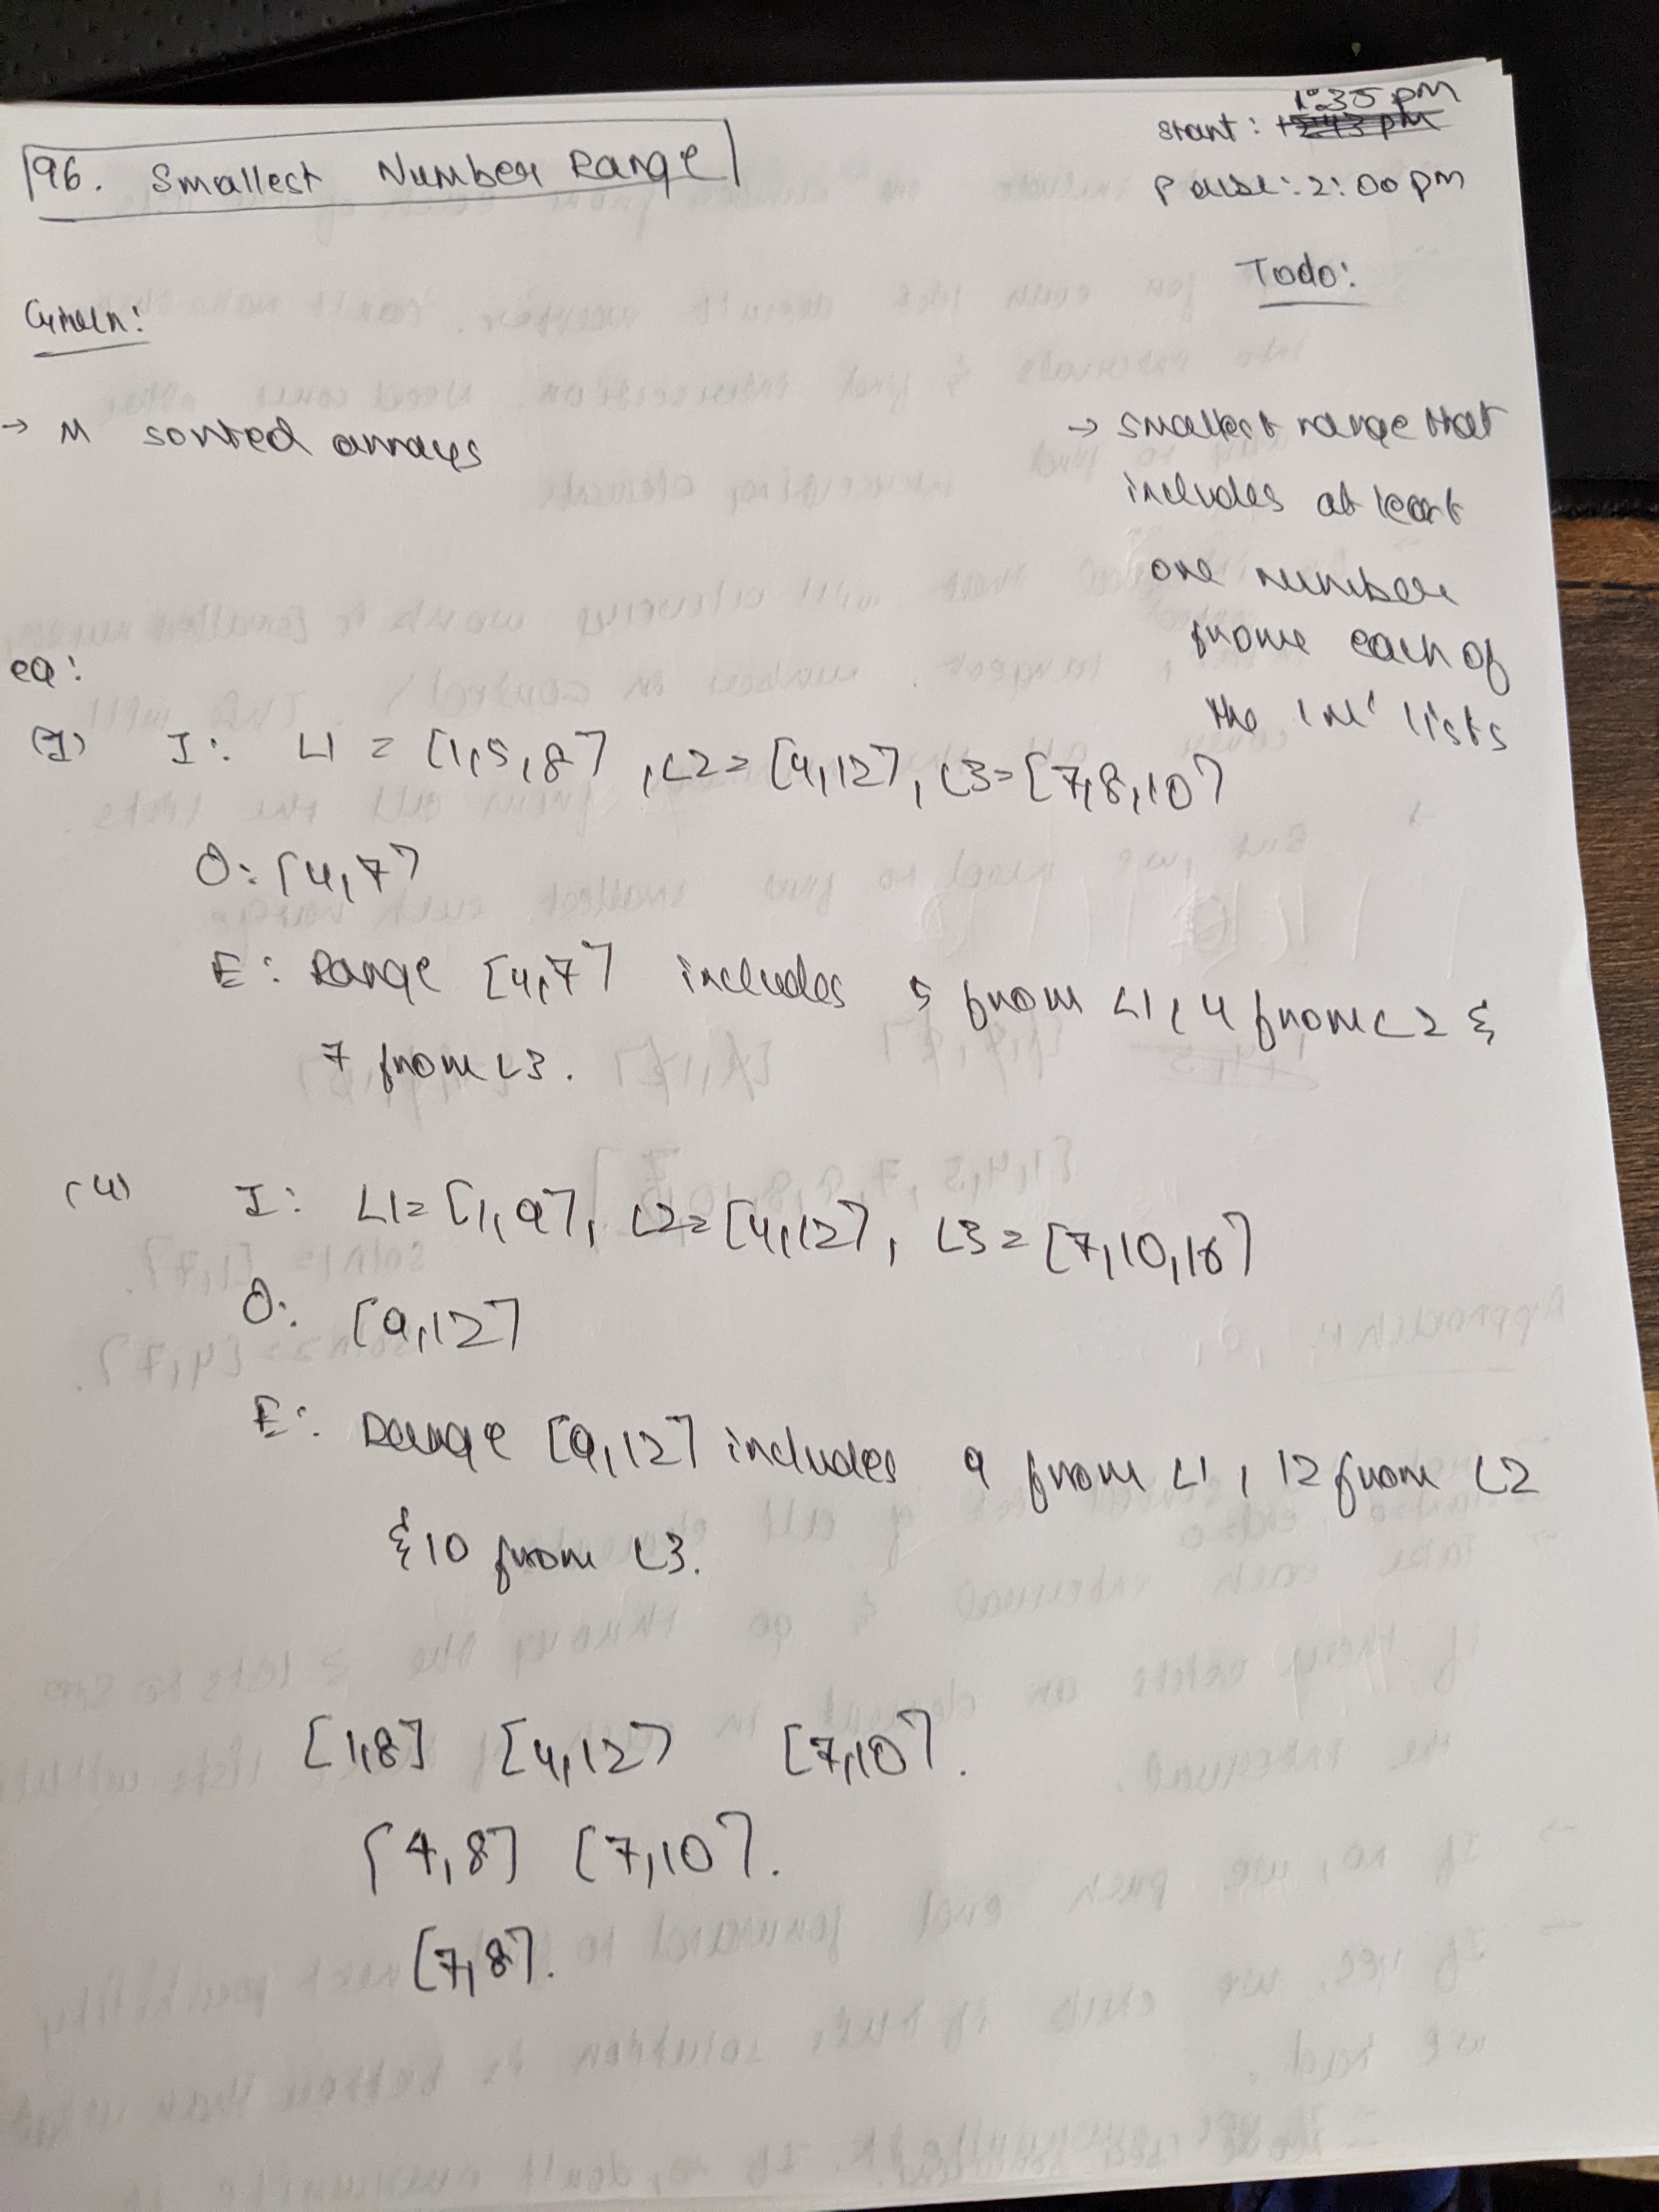 196. Smallest Number Range
start: 1:35 pm
Pause: 2:00 pm
Given:
Todo:
→ M sorted arrays
→ smallest range that
includes at least
one number
from each of
the 'M' lists
eg:
(I) I: L1 = [1,5,8], L2 = [4,12], L3 = [7,8,10]
O: [4,7]
E: Range [4,7] includes 5 from L1, 4 from L2 &
7 from L3.
I: L1 = [1,9], L2 = [4,12], L3 = [7,10,16]
O: [9,12]
E: Range [9,12] includes 9 from L1, 12 from L2
& 10 from L3.
[1,8] [4,12] [7,10].
[4,8] [7,10].
[7,8].